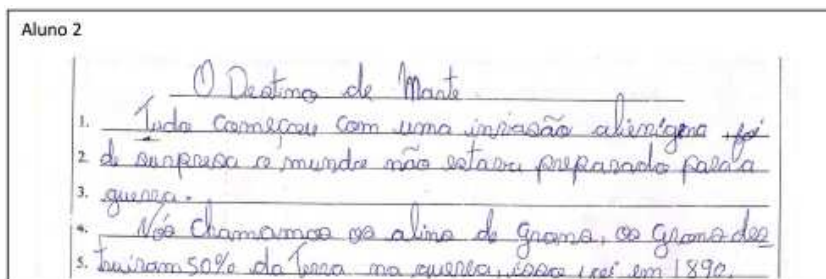 Aluno 2
O Destino de Marte
1. Tudo começou com uma invasão alienígena, foi
2. de surpresa o mundo não estava preparado para a
3. guerra.
4. Nós chamamos os alins de Grans, os Grans des
5. truiram 50% da Terra na guerra, isso foi em 1890.